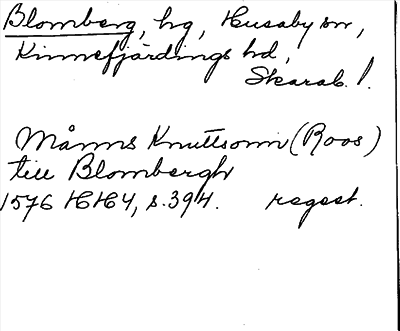 Blomberg, hg, Husaby sn,
Kinnefjärdings hd,
Skarab. l.
Måns Knuttsonn (Roos)
till Blombergh
1576 HH4, s. 394. regest.